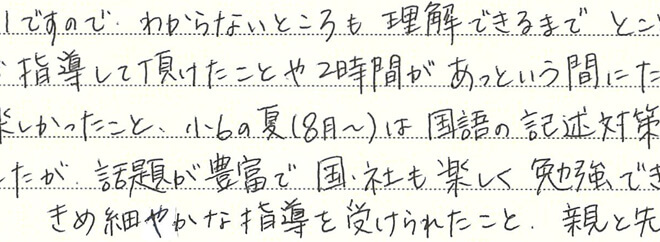 1ですので、わからないところも理解できるまでとこ
指導して頂けたことや2時間があっという間にた
楽しかったこと、小6の夏(8月〜)は国語の記述対策
したが、話題が豊富で国・社も楽しく勉強でき
きめ細やかな指導を受けられたこと、親と先